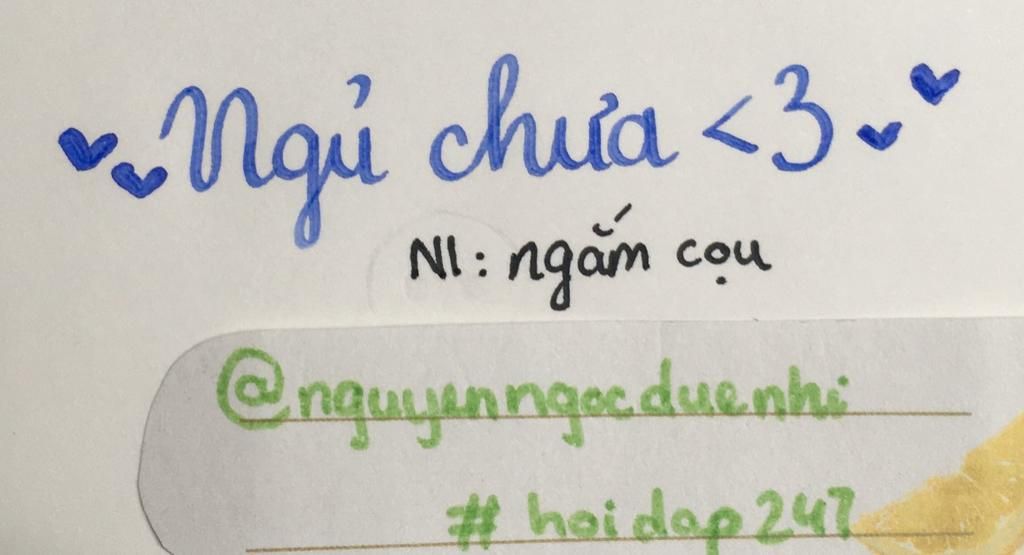 Ngủ chưa <3
Nl : ngắm cọu
@nguyenngocduenhi
# hoidap247